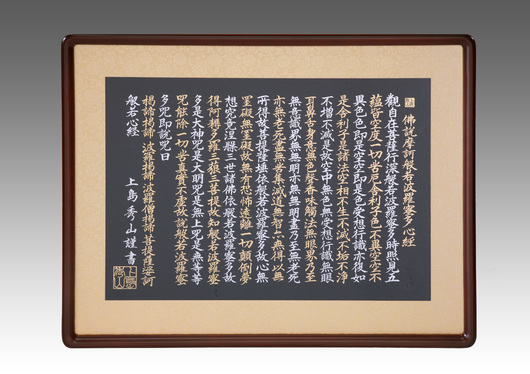 佛説摩訶般若波羅蜜多心経
觀自在菩薩行深般若波羅蜜多時照見五
蘊皆空度一切苦厄舎利子色不異空空不
異色色即是空空即是色受想行識亦復如
是舎利子是諸法空相不生不滅不垢不浄
不増不減是故空中無色無受想行識無眼
耳鼻舌身意無色聲香味觸法無眼界乃至
無意識界無無明亦無無明盡乃至無老死
亦無老死盡無苦集滅道無智亦無得以無
所得故菩提薩埵依般若波羅蜜多故心無
罣礙無罣礙故無有恐怖遠離一切顛倒夢
想究竟涅槃三世諸佛依般若波羅蜜多故
得阿耨多羅三藐三菩提故知般若波羅蜜
多是大神呪是大明呪是無上呪是無等等
呪能除一切苦真實不虚故説般若波羅蜜
多呪即説呪曰
揭諦揭諦 波羅揭諦 波羅僧揭諦 菩提薩婆訶
般若心経 上島秀山謹書